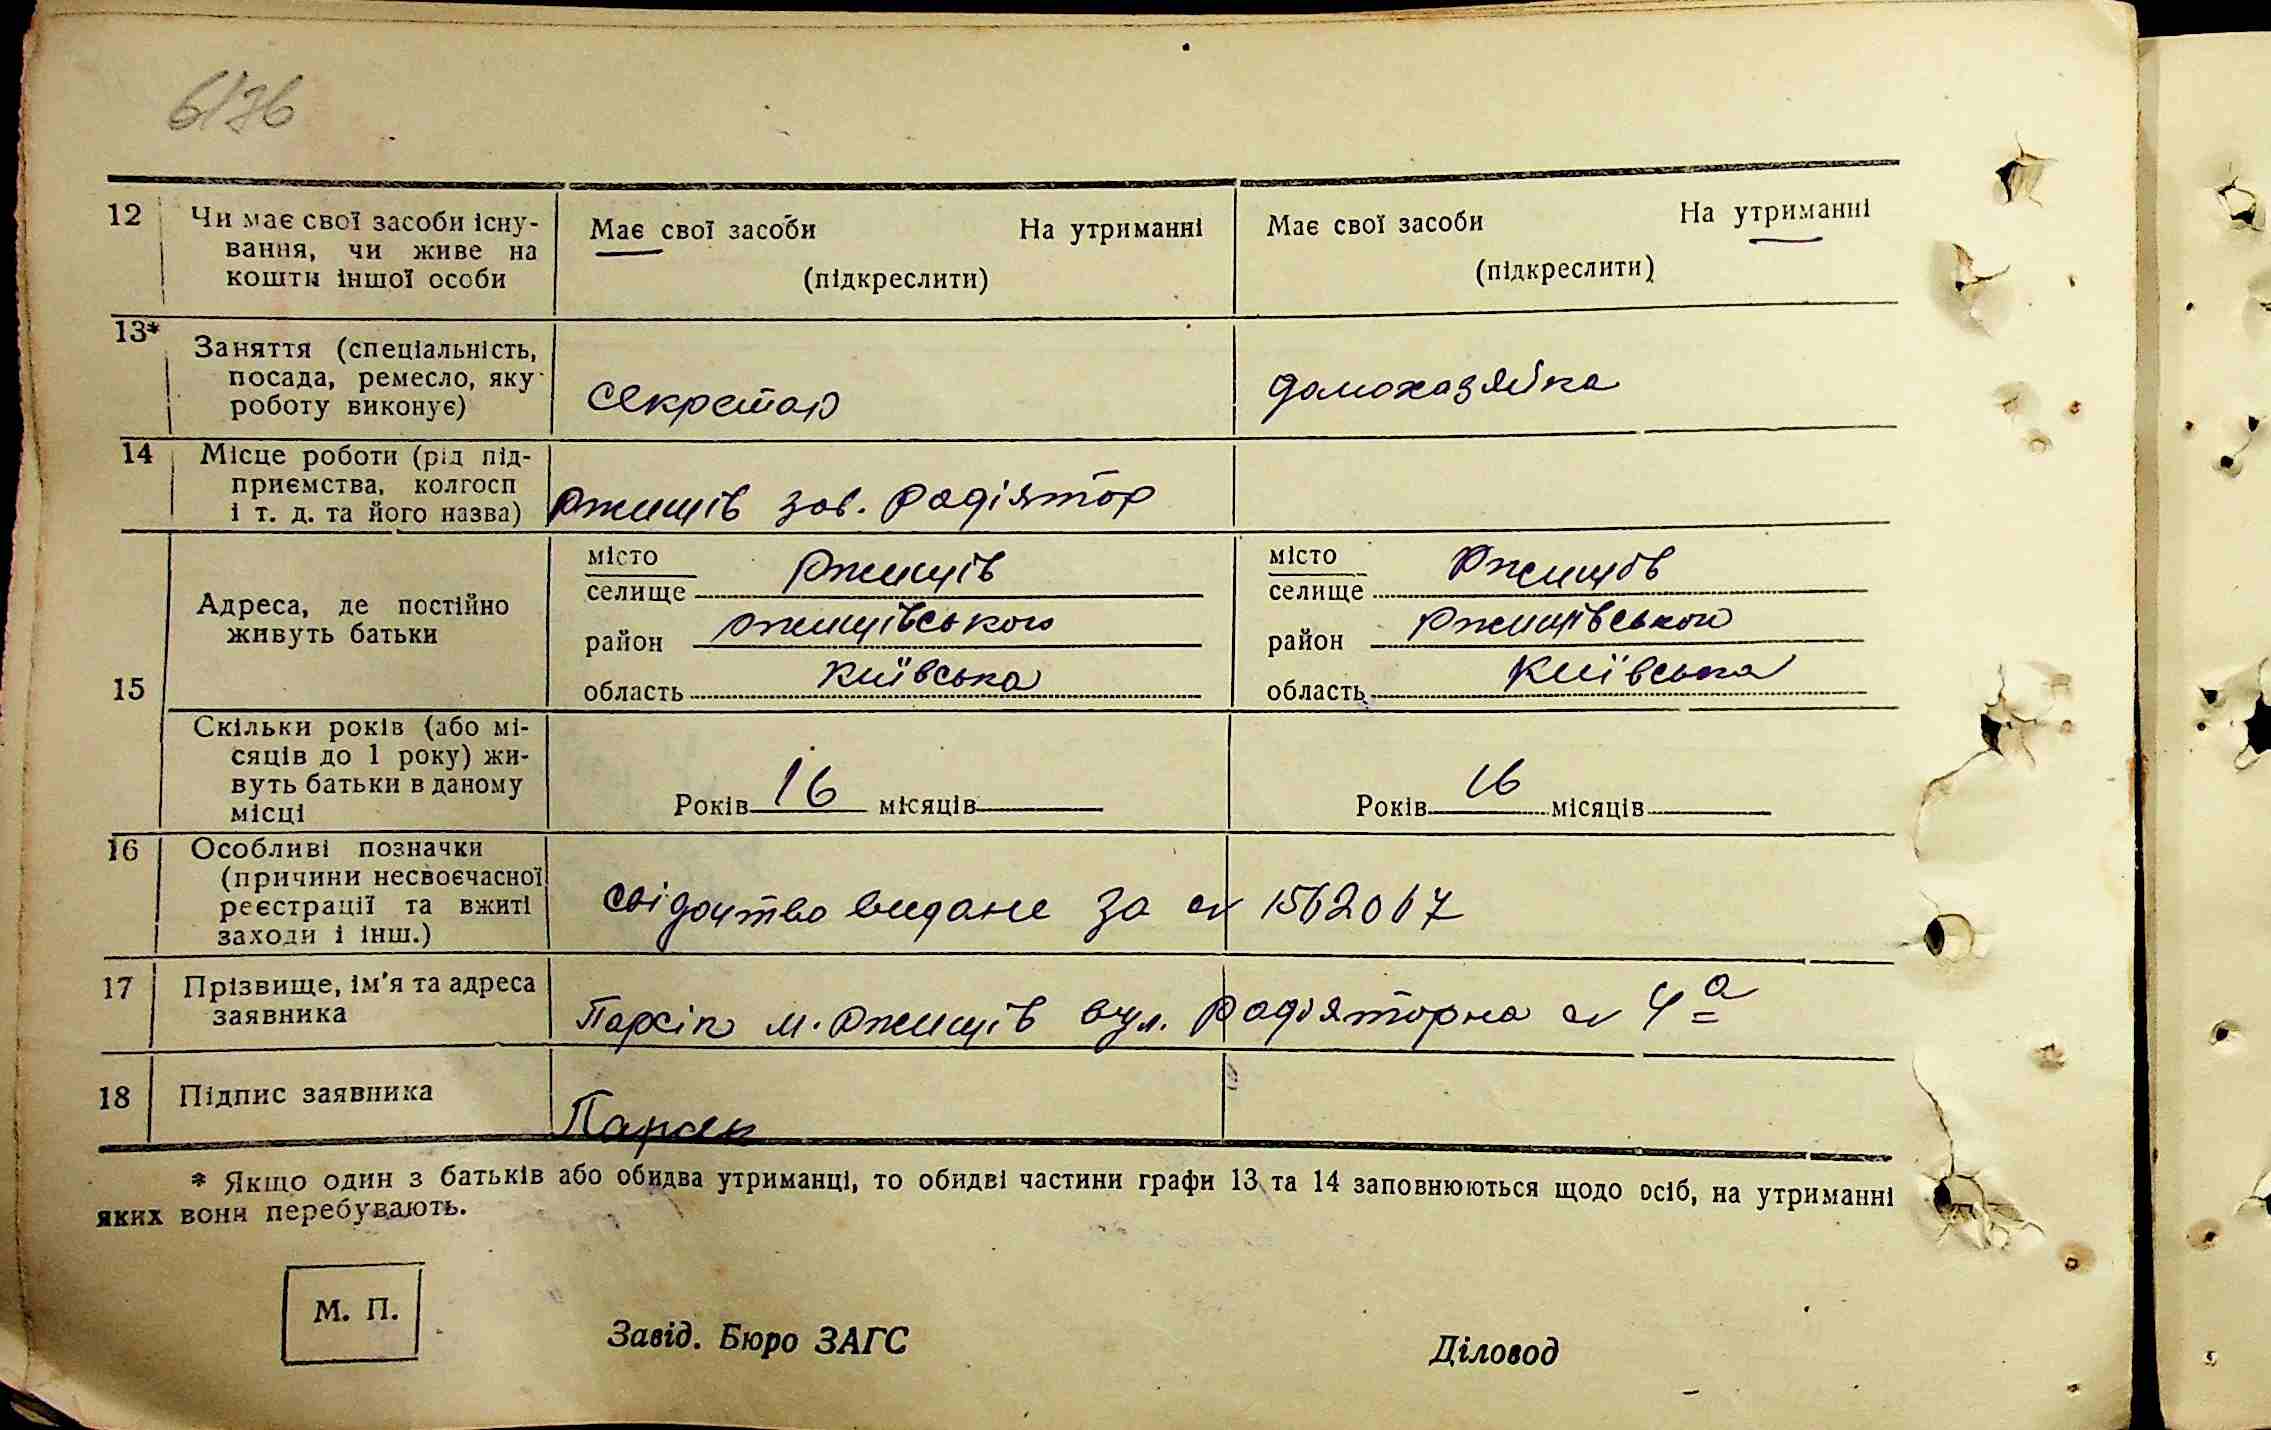 6/36
12 Чи має свої засоби існу-
вання, чи живе на
кошти іншої особи
Має свої засоби На утриманні
(підкреслити)
Має свої засоби На утриманні
(підкреслити)
13* Заняття (спеціальність,
посада, ремесло, яку
роботу виконує)
секретар
домохазяйка
14 Місце роботи (рід під-
приємства, колгосп
і т. д. та його назва)
Ржищів зав. Радіятор
15 Адреса, де постійно
живуть батьки
місто
селище Ржищів
район Ржищівського
область Київська
місто
селище Ржищів
район Ржищівського
область Київська
Скільки років (або мі-
сяців до 1 року) жи-
вуть батьки в даному
місці
Років 16 місяців
Років 16 місяців
16 Особливі позначки
(причини несвоєчасної
реєстрації та вжиті
заходи і інш.)
свідоцтво видане за № 1562067
17 Прізвище, ім'я та адреса
заявника
м. Ржищів вул. Радіяторна № 4а
18 Підпис заявника
* Якщо один з батьків або обидва утриманці, то обидві частини графи 13 та 14 заповнюються щодо осіб, на утриманні
яких вони перебувають.
М. П.
Завід. Бюро ЗАГС
Діловод